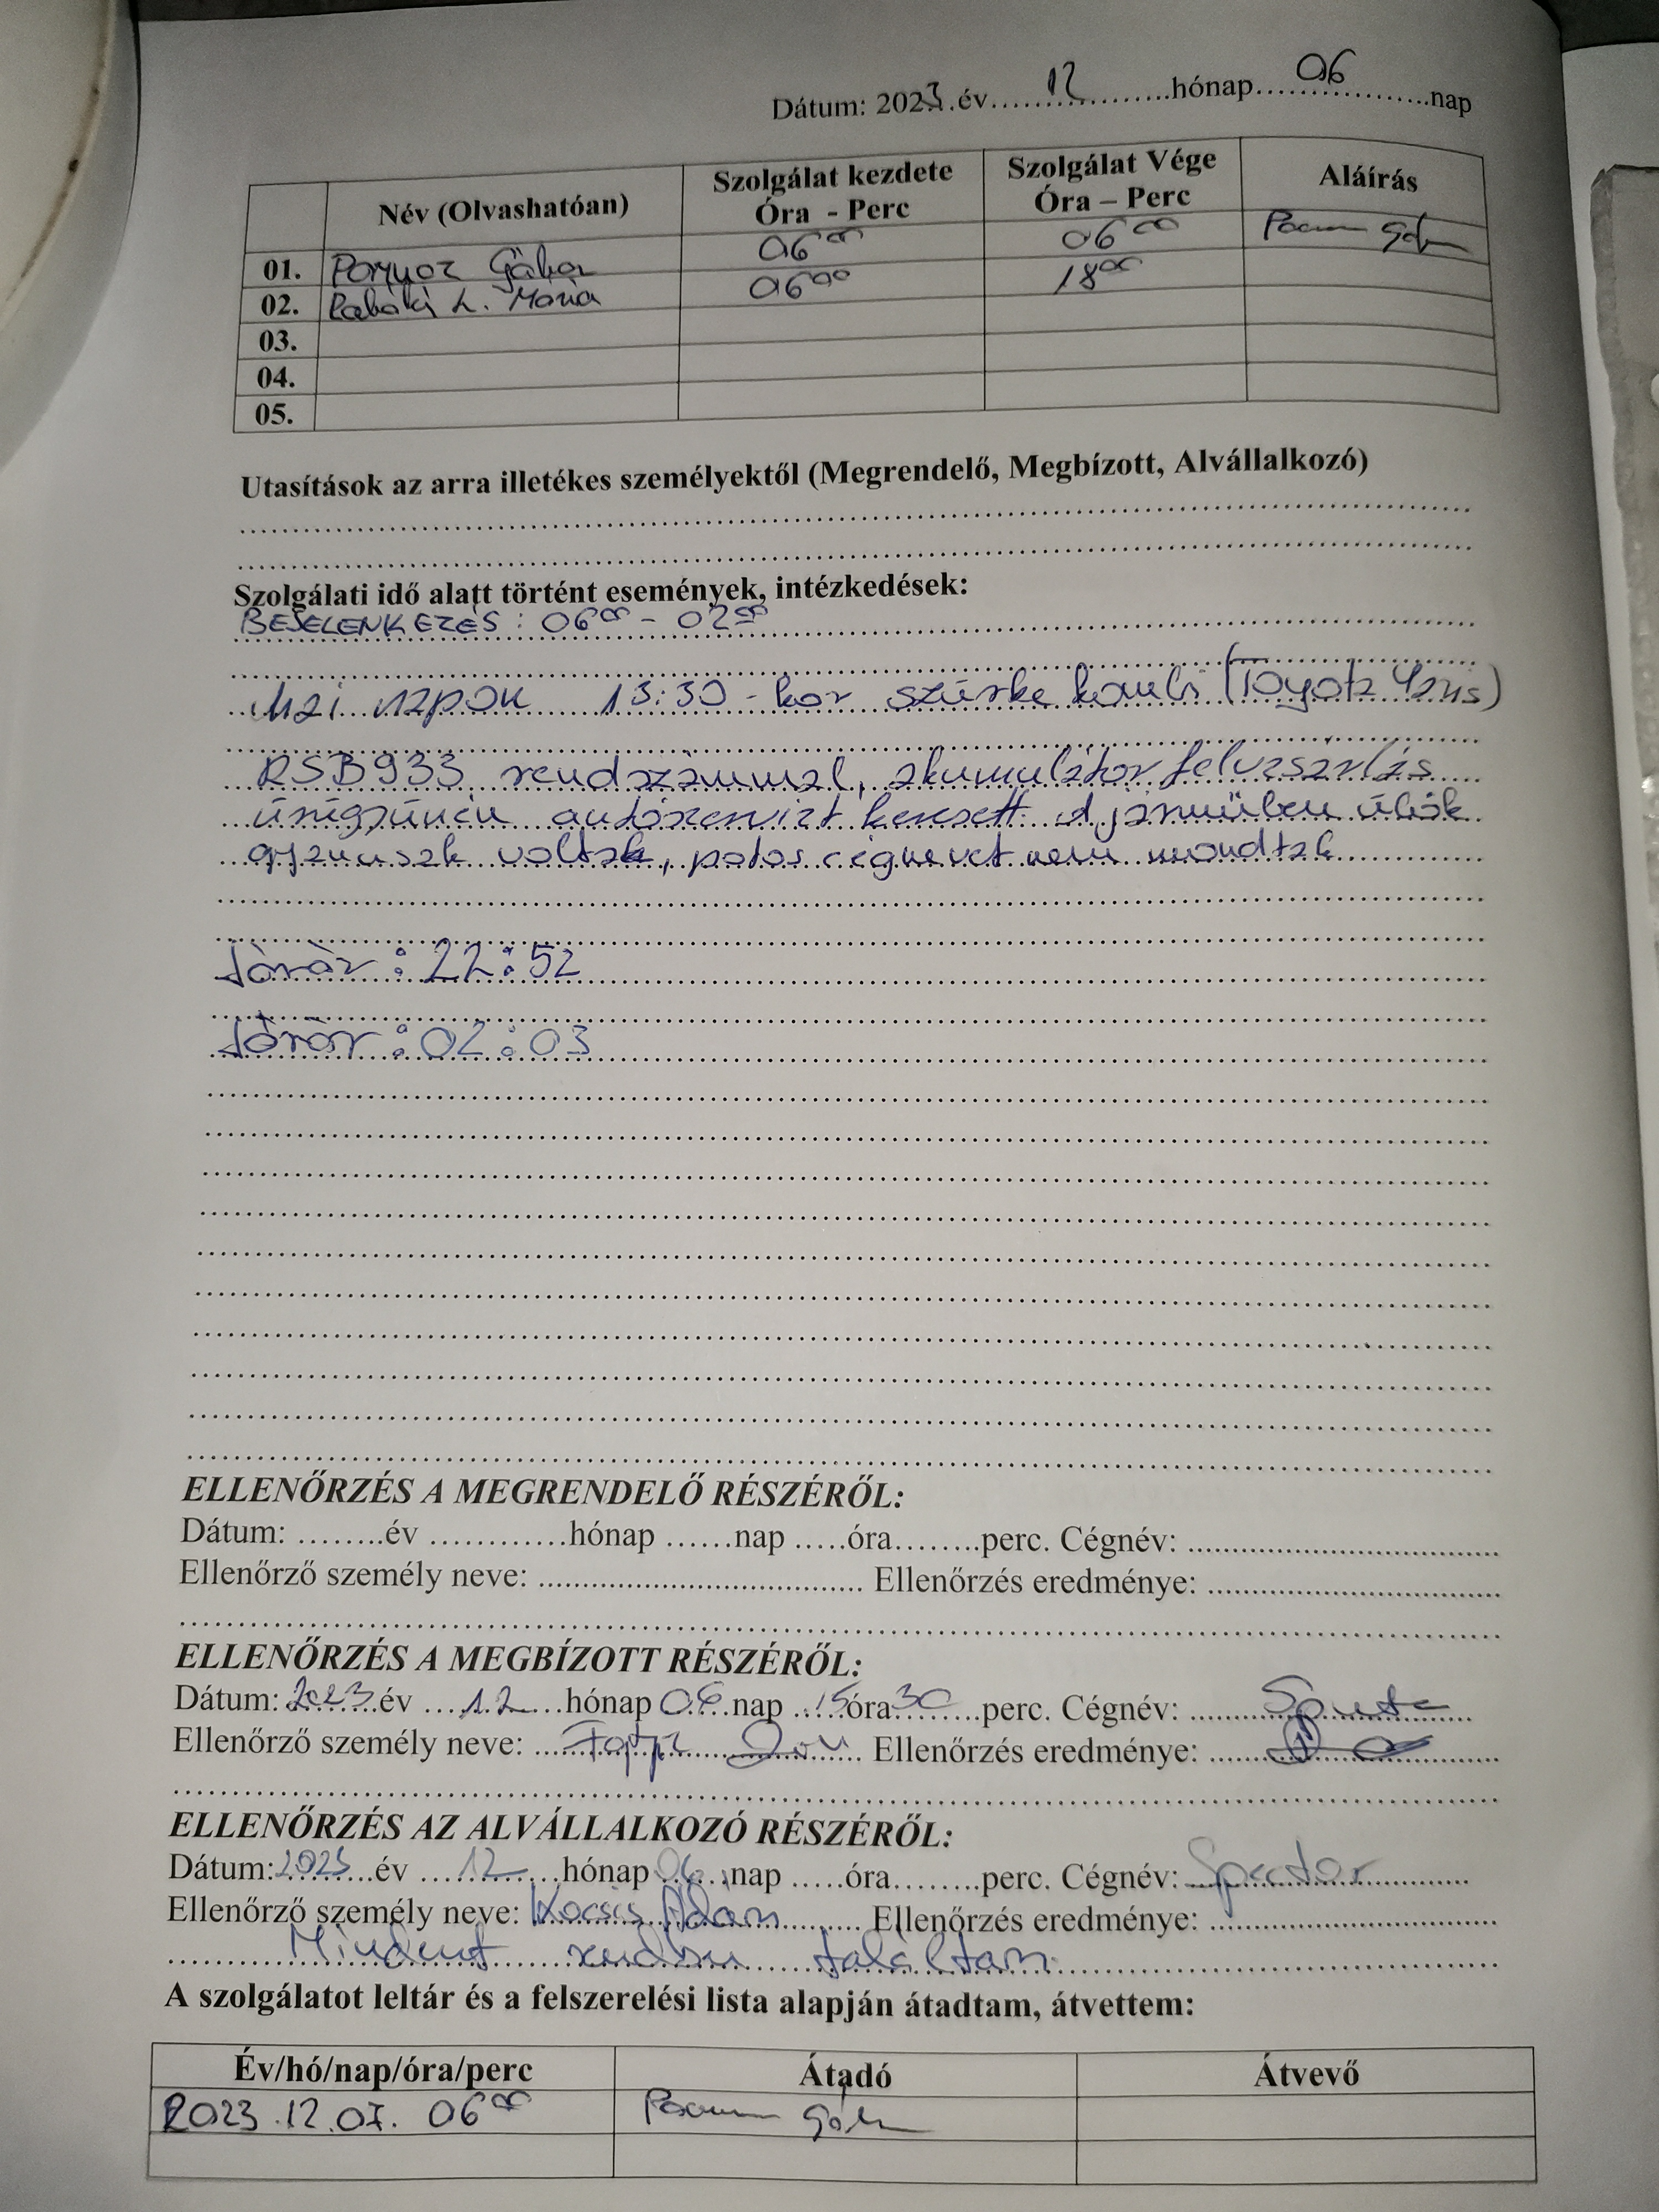 Dátum: 2023.év 12 hónap 06 nap
Név (Olvashatóan) Szolgálat kezdete Óra - Perc Szolgálat Vége Óra – Perc Aláírás
01. Gábor 06 00 06 00
02. L. Mária 06 00 18 00
03.
04.
05.
Utasítások az arra illetékes személyektől (Megrendelő, Megbízott, Alvállalkozó)
Szolgálati idő alatt történt események, intézkedések:
BEJELENKEZÉS : 06 00 - 02 00
Mai napon 13:30 - kor szürke kombi (Toyota Yaris)
RSB933 rendszámmal, akumulátor felvásárlás
ürügyén autószervizt keresett. A járműben ülők
gyanúsak voltak, pontos cégnevet nem mondtak
Járőr : 22:52
Járőr : 02:03
ELLENŐRZÉS A MEGRENDELŐ RÉSZÉRŐL:
Dátum: ........év ............hónap ......nap .....óra........perc. Cégnév:
Ellenőrző személy neve: Ellenőrzés eredménye:
ELLENŐRZÉS A MEGBÍZOTT RÉSZÉRŐL:
Dátum: 2023 év 12 hónap 06 nap 15 óra 30 perc. Cégnév:
Ellenőrző személy neve: Ellenőrzés eredménye:
ELLENŐRZÉS AZ ALVÁLLALKOZÓ RÉSZÉRŐL:
Dátum: 2023 év 12 hónap 06 nap .....óra........perc. Cégnév:
Ellenőrző személy neve: Kocsis Ádám Ellenőrzés eredménye:
Mindent rendben találtam.
A szolgálatot leltár és a felszerelési lista alapján átadtam, átvettem:
Év/hó/nap/óra/perc Átadó Átvevő
2023.12.07. 06 00